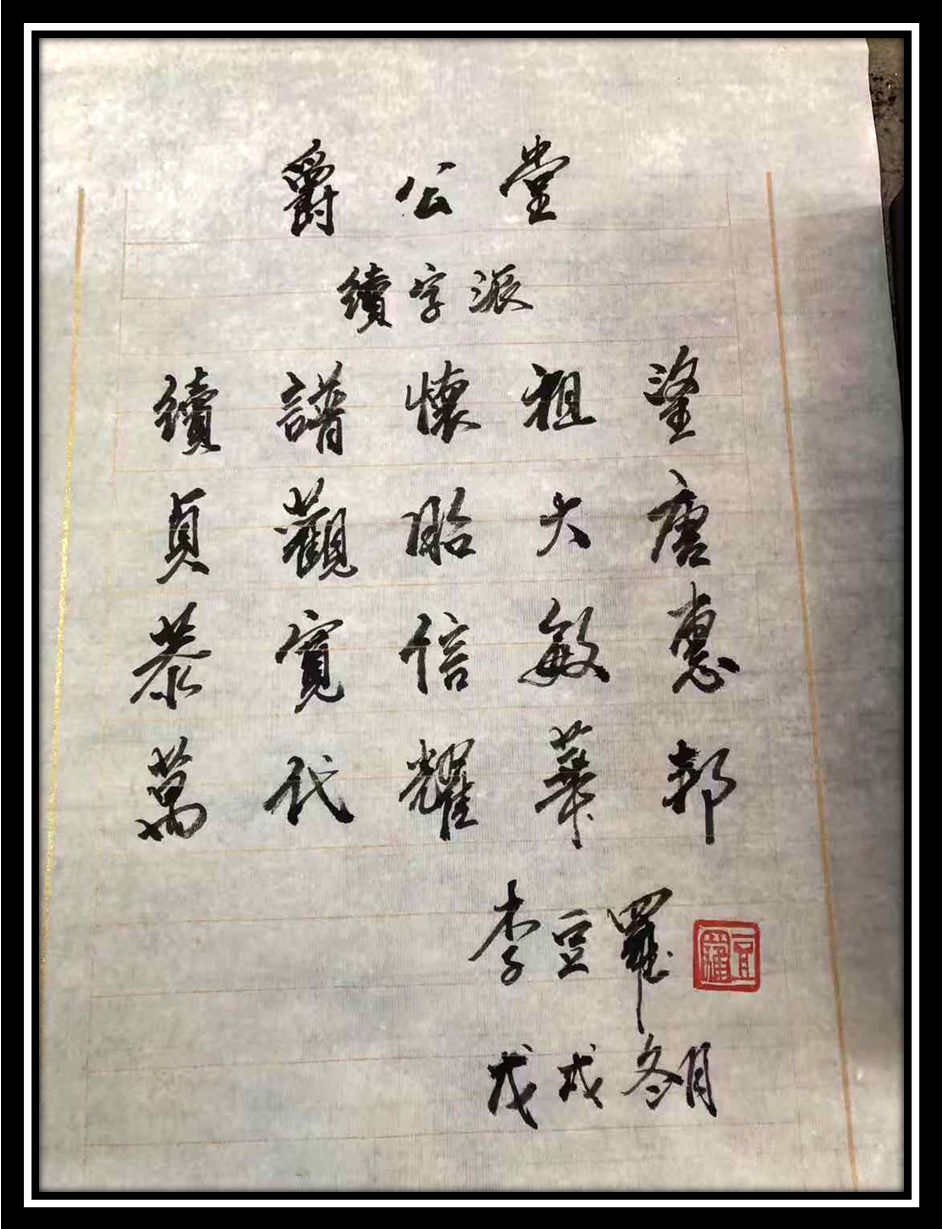 爵公堂
續字派
續譜懷祖望
貞觀大唐
恭寬信敏惠
萬代耀華邦
李豆羅
豆羅
戊戌冬月